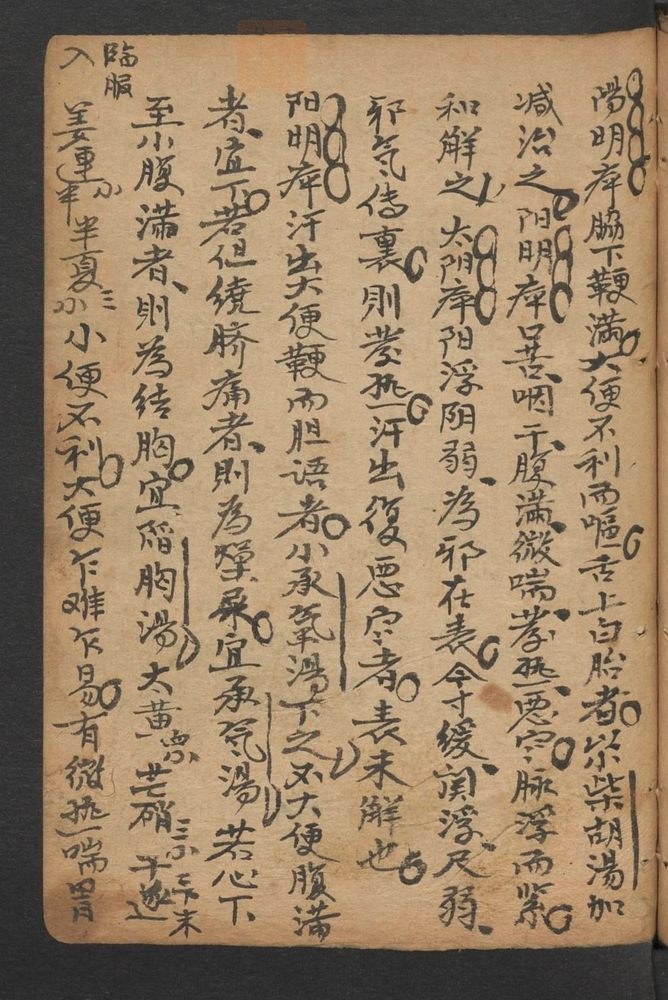 陽明病脇下鞕滿大便不利而嘔舌上白胎者小柴胡湯加
减治之阳明病口苦咽干腹滿微喘發热悪寒脉浮而紧
和解之太阴病阳浮阴弱為邪在表今寸緩関浮尺弱
邪気傳裏則發热汗出復悪寒者表未解也
阳明病汗出大便鞕而胆語者小承氣湯下之又大便腹满
者宜下若但繞脐痛者則為燥屎宜承気湯若心下
至小腹滿者則為结胸宜陷胸湯大黄 芒硝 甘遂末
姜連 半夏 小便不利大便乍难乍易有微热喘冒
臨服
入